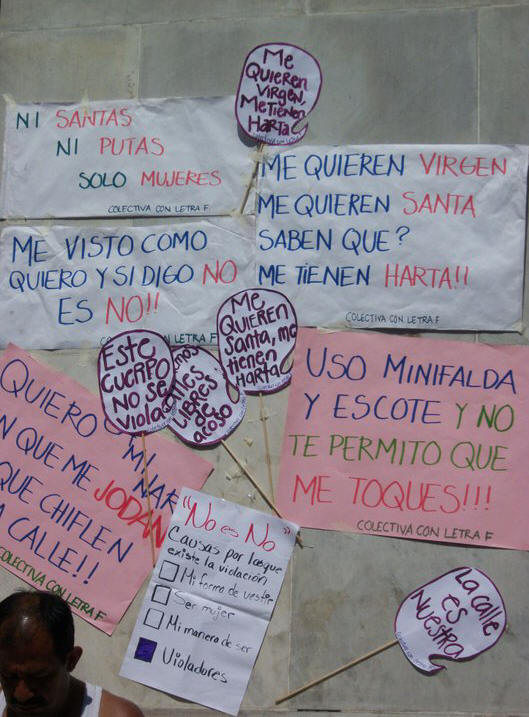 Me
QUIEREN
VIRGEN,
Me TIENEN
HARTA
NI SANTAS
NI PUTAS
SOLO MUJERES
COLECTIVA CON LETRA F
ME QUIEREN VIRGEN
ME QUIEREN SANTA
SABEN QUE?
ME TIENEN HARTA!!
COLECTIVA CON LETRA F
ME VISTO COMO
QUIERO Y SI DIGO NO
ES NO!!
LETRA F
Me
QUIEREN
Santa, me
tienen
HARTA
Este
CUERPO
NO SE
Viola
LIBRES
DE
acoso
USO MINIFALDA
Y ESCOTE Y NO
TE PERMITO QUE
ME TOQUES!!!
COLECTIVA CON LETRA F
QUIERO
MI
QUE ME JODAN
QUE CHIFLEN
CALLE!!
COLECTIVA CON LETRA F
"No es No"
Causas por las que
existe la violación
Mi forma de vestir
Ser mujer
Mi manera de ser
Violadores
La calle
es
Nuestra